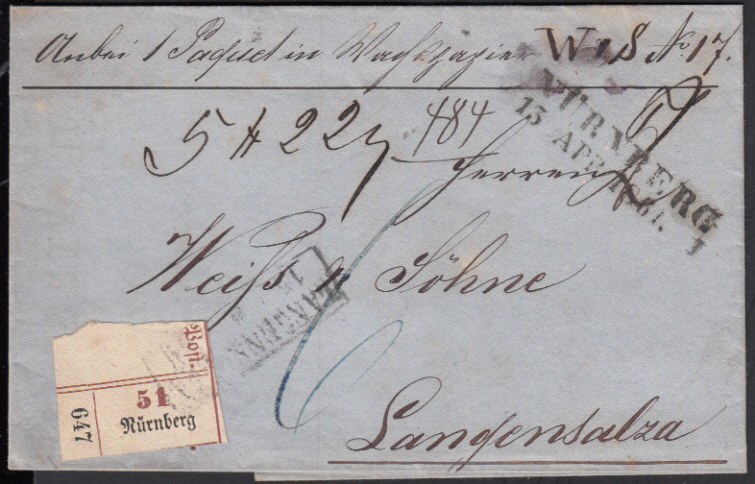 Anbei 1 Paquet in Wachspapier W & S No 17.
NÜRNBERG
13 APR 1861. 1
5 ℔ 22
484
Herren
Weiss & Söhne
LANGENS
6
Langensalza
Post.
51
Nürnberg
647